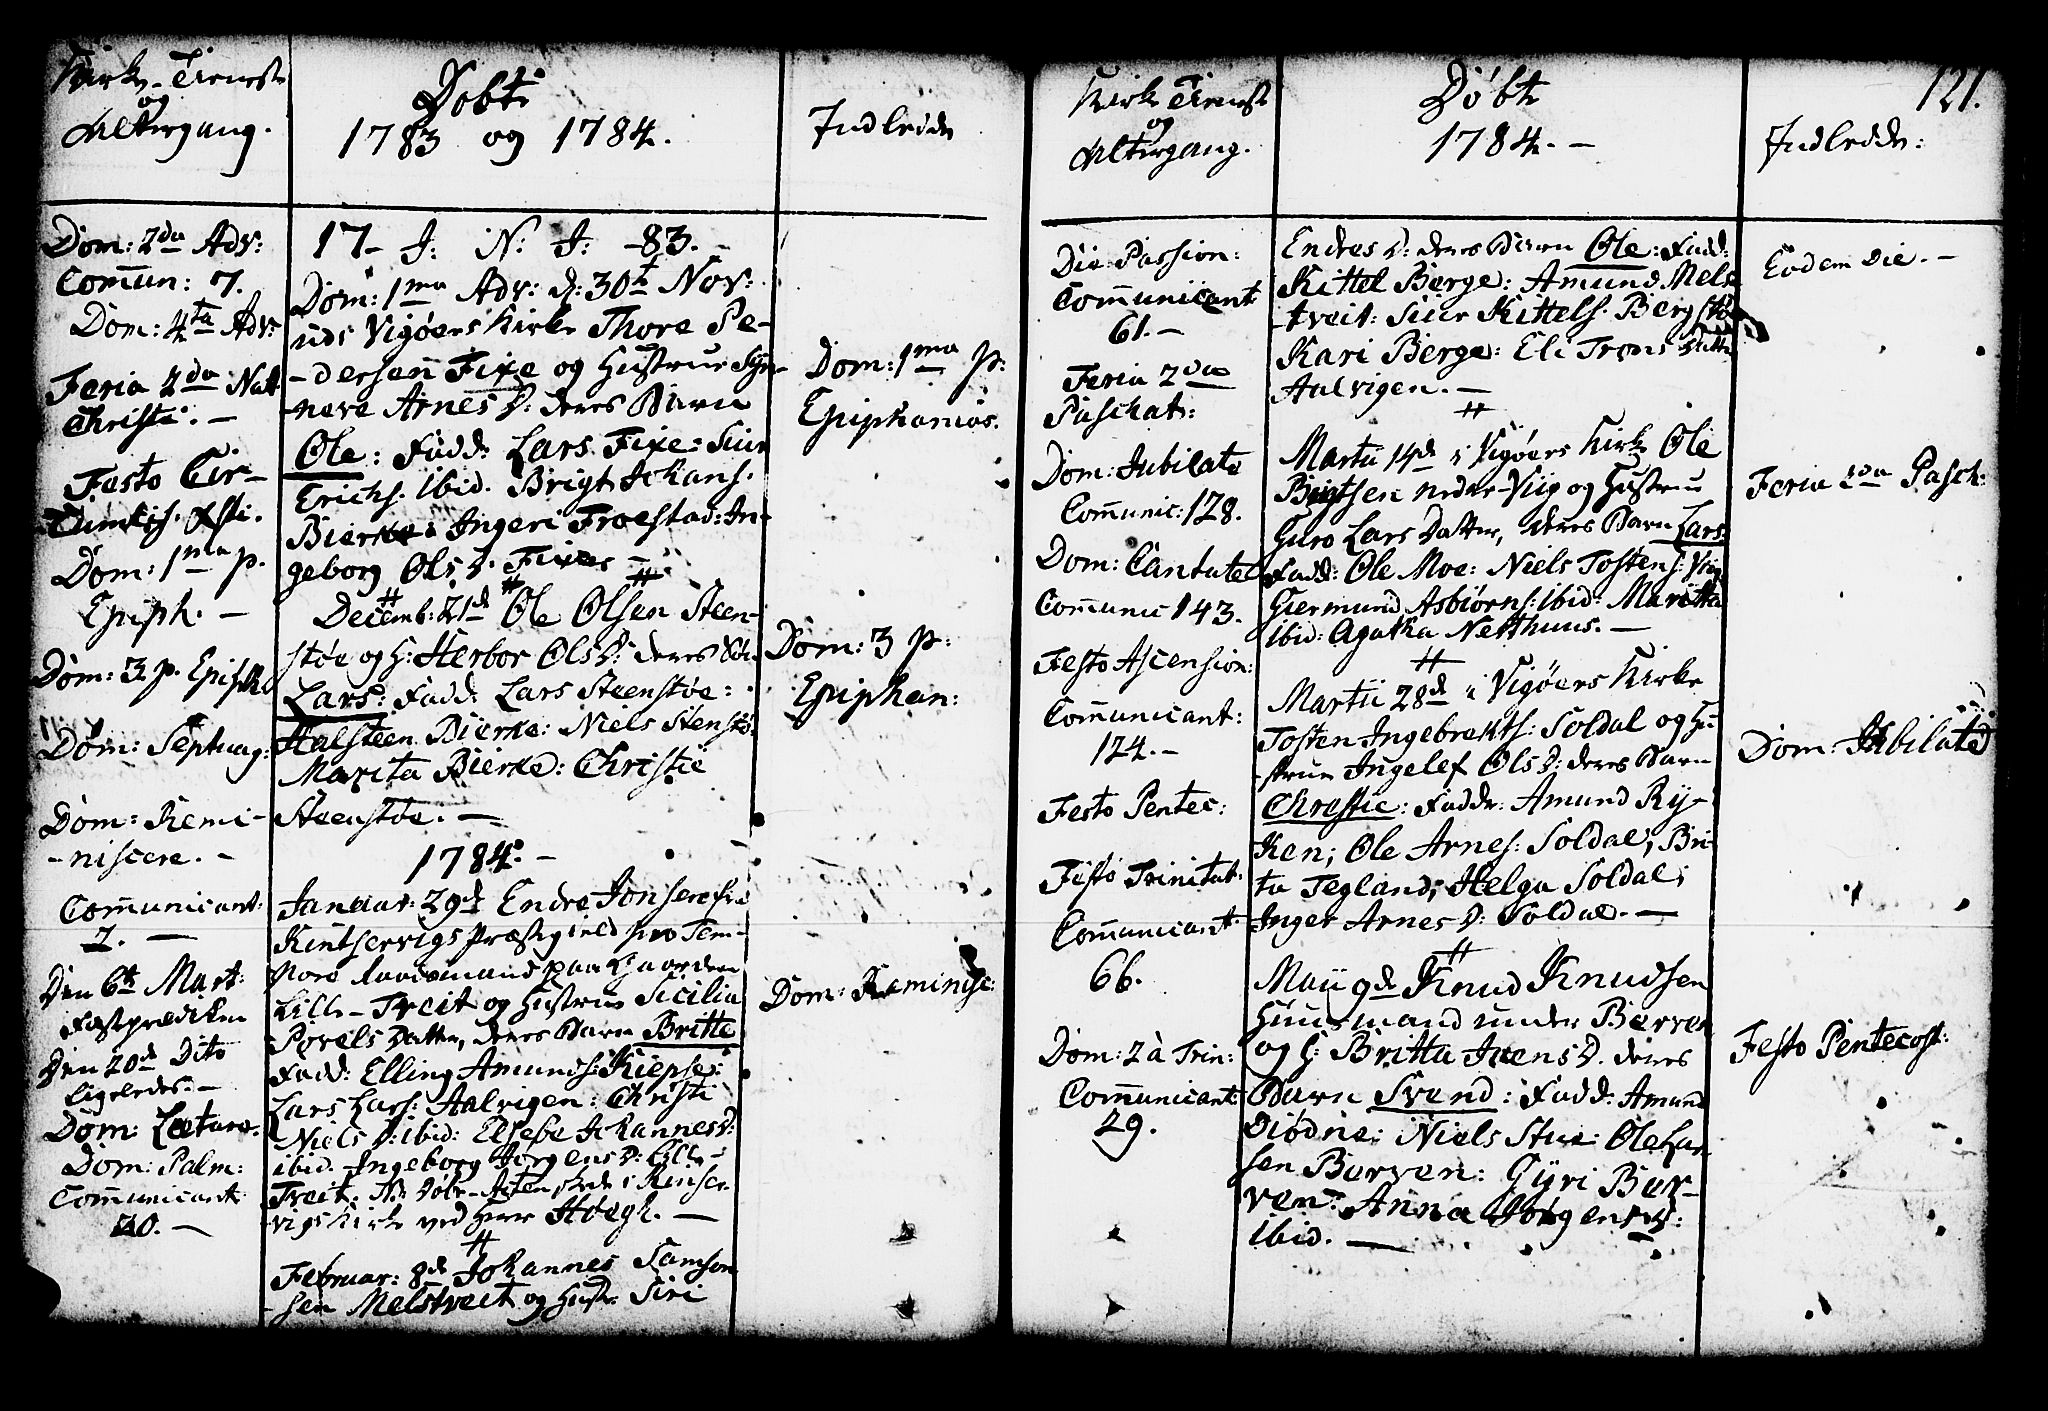 Kirke-Tienest
og
Altergang.
Dom: 2da Adv:
Comun: 7.
Dom: 4ta Adv:
Feria 2da Natt
Christi. -
Festo Cir-
Dom: 1ma p.
Epiph. -
Dom: 3 p. Epiph:
Dom: Septuag:
Dom: Remi-
-niscere. -
Communicant:
7. -
Den 6te Mart:
Fasteprædiken
Den 20de Dito
ligeledes. -
Dom: Lætare.
Dom: Palm:
Communicant:
20. -
Døbte
1783 og 1784.
17- J: N: J: -83. -
Dom: 1ma Adv: d: 30te Nov:
udi Vigøers Kirke Thore Pe-
-dersen Fixe og Hustrue Syn-
-neve Arnes D: deres Barn
Ole: Fadd: Lars Fixe: Siur
Erichs. ibid. Brigt Johans.
Bierke: Ingeri Troestad: In-
geborg Ols D. Fixe -
Decemb: 21de Ole Olsen Steen-
støe og H: Herbor Ols D: deres Søn
Lars: Fadd: Lars Steenstøe:
Halsteen Bierke: Niels Stenstø:
Marita Bierke: Christie
Steenstøe. -
1784. -
Januar: 29de Endre Jonsen fra
Kintservigs Præstegield pro Tem-
pore Laudsmand paa Gaarden
Lille-Tveit og Hustrue Sicilia
Povels Datter, deres Barn Britte
Fadd: Elling Amunds: Kiepse:
Lars Lars: Aalvigen: Christi
Niels D: ibid: Elsebe Johannes D:
ibid. Ingeborg Jørgens D: Lille-
Tveit. NB Døbe-Acten skede i Kinser-
vigs Kirke ved Herr Høegh. -
Februar: 8de Johannes Samson
sen Melstveit og Hustr: Siri
Indledde
Dom: 1ma p:
Epiphanias.
Dom: 3 p:
Epiphan:
Dom: Reminisc:
Kirke Tienest
og
Altergang.
Die Passion:
Communicant
61. -
Feria 2da
Paschat:
Dom: Jubilate
Communic: 128.
Dom: Cantate
Communic 143.
Festo Ascension:
Communicant:
124. -
Festo Pentec:
Festo Trinitat:
Communicant.
66.
Dom: 2 à Trin:
Communicant:
29.
Døbte
1784. -
Endres D: deres Barn Ole: Fadd:
Kittel Berge: Amund Mels
-tveit: Siur Kittels. Bergstø
Kari Berge: Eli Trons Datter
Aalvigen. -
Martii 14de i Vigøers Kirke Ole
Brigtsen Nedre-Viig og Hustrue
Guro Lars Datter, deres Barn Lars:
Fadd: Ole Moe: Niels Tostens: Viig
Giermund Asbiørns: ibid: Maritta
ibid: Agatha Netthuus. -
Martii 28de i Vigøers Kirke
Tosten Ingebrekts: Soldal og Hu-
-strue Ingelef Ols D: deres Barn
Chrestie: Fadde: Amund Ry-
ken; Ole Arnes: Soldal; Bri-
ta Tegland; Helga Soldal;
Inger Arnes D: Soldal. -
Maii 9de Knud Knudsen
Huusmand under Berven
og H: Britta Ivens D. deres
Barn Svend: Fadd: Amund
Diødne: Niels Stue: Ole Lar
sen Berven: Gyri Ber-
ven: Anna Jørgens D:
ibid. -
121.
Indledde:
Eodem die. -
Feria 2da Pasch:
Dom: Jubilate
Festo Pentecost: